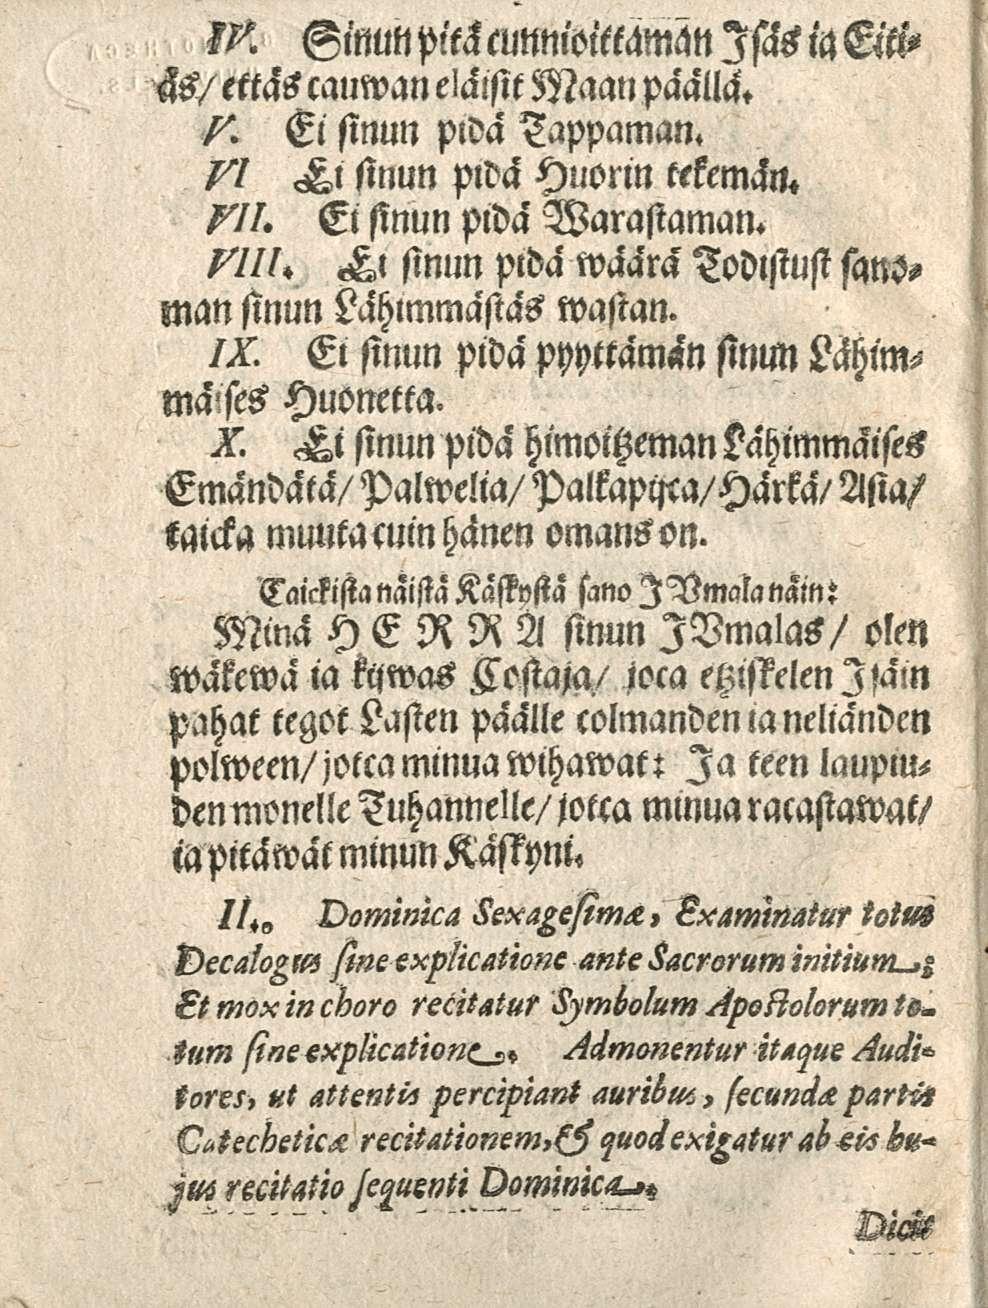 IV. Sinun pitä cunnioittaman Isäs ia Eiti⸗
äs/ ettäs cauwan eläisit Maan päällä.
V. Ei sinun pidä Tappaman.
VI Ei sinun pidä Huorin tekemän.
VII. Ei sinun pidä Warastaman.
VIII. Ei sinun pidä wäärä Todistust sano⸗
man sinun Lähimmästäs wastan.
IX. Ei sinun pidä pyyttämän sinun Lähim⸗
mäises Huonetta.
X. Ei sinun pidä himoitzeman Lähimmäises
Emändätä/ Palwelia/ Palkapijca/ Härkä/ Asia/
taicka muuta cuin hänen omans on.
Caickista näistä Käskystä sano JVmala näin:
Minä HERRA sinun JVmalas/ olen
wäkewä ia kijwas Costaja/ joca etziskelen Isäin
pahat tegot Lasten päälle colmanden ia neliänden
polween/ jotca minua wihawat: Ja teen laupiu⸗
den monelle Tuhannelle/ jotca minua racastawat/
ia pitäwät minun Käskyni.
II. Dominica Sexagesimæ, Examinatur totus
Decalogus sine explicatione ante Sacrorum initium:
Et mox in choro recitatur Symbolum Apostolorum to-
tum sine explicatione. Admonentur itaque Audi-
tores, ut attentis percipiant auribus, secundæ partis
Catecheticæ recitationem, & quod exigatur ab eis hu-
jus recitatio sequenti Dominica.
Dicit